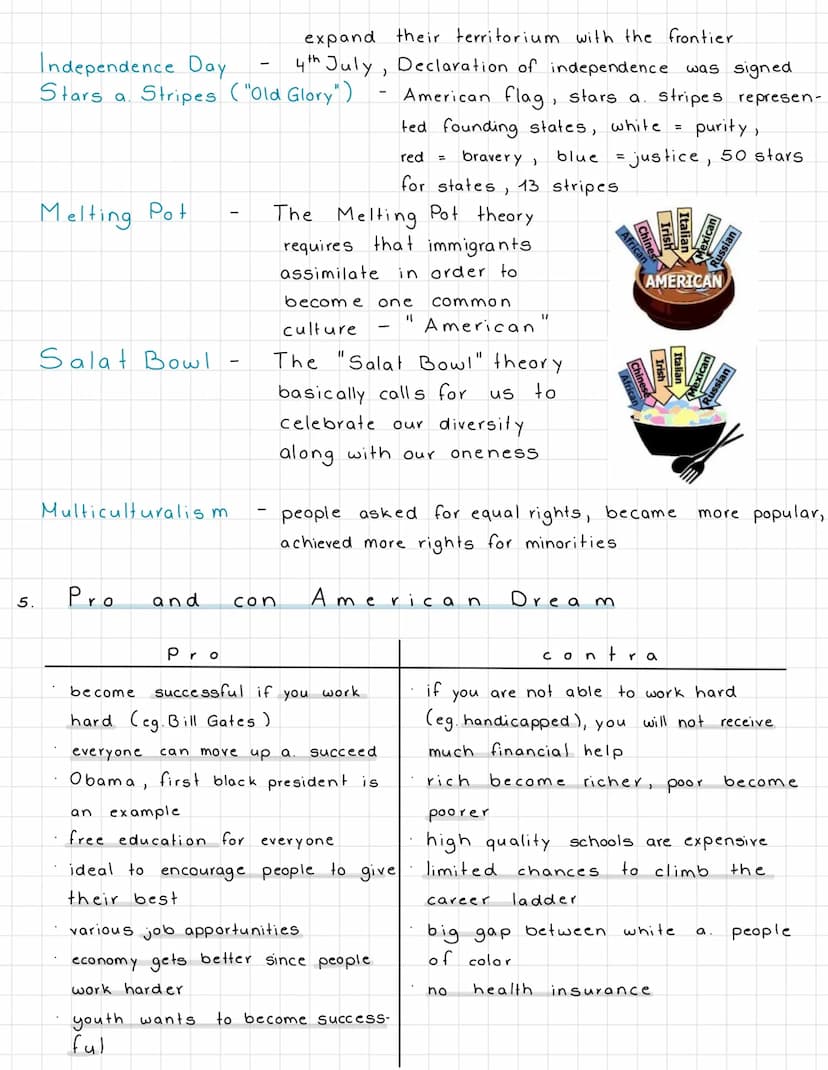 expand their territorium with the frontier
Independence Day - 4th July, Declaration of independence was signed
Stars a. Stripes ("Old Glory") - American flag, stars a. stripes represen-
ted founding states, white = purity,
red = bravery, blue = justice, 50 stars
for states, 13 stripes
Melting Pot - The Melting Pot theory
requires that immigrants
assimilate in order to
become one common
culture - "American"
African Chinese Irish Italian Mexican Russian
AMERICAN
Salat Bowl - The "Salat Bowl" theory
basically calls for us to
celebrate our diversity
along with our oneness
African Chinese Irish Italian Mexican Russian
Multiculturalism - people asked for equal rights, became more popular,
achieved more rights for minorities
5. Pro and con American Dream
Pro
become successful if you work
hard (eg. Bill Gates)
everyone can move up a. succeed
Obama, first black president is
an example
free education for everyone
ideal to encourage people to give
their best
various job apportunities
economy gets better since people
work harder
youth wants to become success-
ful
contra
if you are not able to work hard
(eg. handicapped), you will not receive
much financial help
rich become richer, poor become
poorer
high quality schools are expensive
limited chances to climb the
career ladder
big gap between white a. people
of color
no health insurance